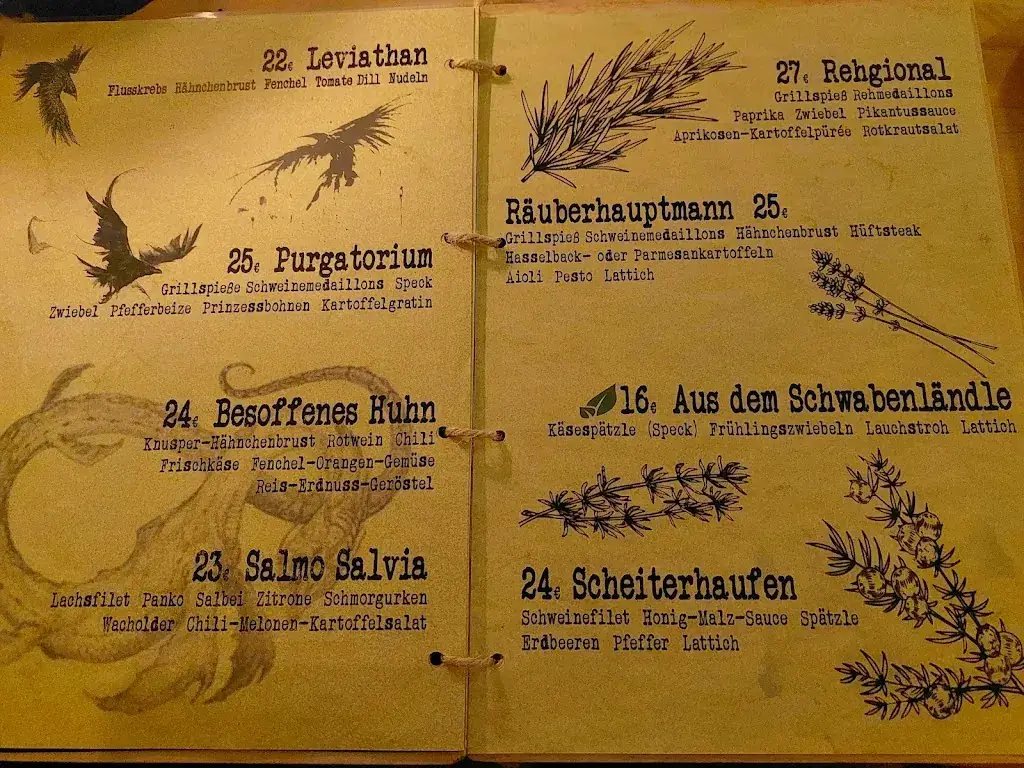 22€ Leviathan
Flusskrebs Hähnchenbrust Fenchel Tomate Dill Nudeln
25€ Purgatorium
Grillspieße Schweinemedaillons Speck
Zwiebel Pfefferbeize Prinzessbohnen Kartoffelgratin
24€ Besoffenes Huhn
Knusper-Hähnchenbrust Rotwein Chili
Frischkäse Fenchel-Orangen-Gemüse
Reis-Erdnuss-Geröstel
23€ Salmo Salvia
Lachsfilet Panko Salbei Zitrone Schmorgurken
Wacholder Chili-Melonen-Kartoffelsalat
27€ Rehgional
Grillspieß Rehmedaillons
Paprika Zwiebel Pikantussauce
Aprikosen-Kartoffelpürée Rotkrautsalat
Räuberhauptmann 25€
Grillspieß Schweinemedaillons Hähnchenbrust Hüftsteak
Hasselback- oder Parmesankartoffeln
Aioli Pesto Lattich
16€ Aus dem Schwabenländle
Käsespätzle (Speck) Frühlingszwiebeln Lauchstroh Lattich
24€ Scheiterhaufen
Schweinefilet Honig-Malz-Sauce Spätzle
Erdbeeren Pfeffer Lattich